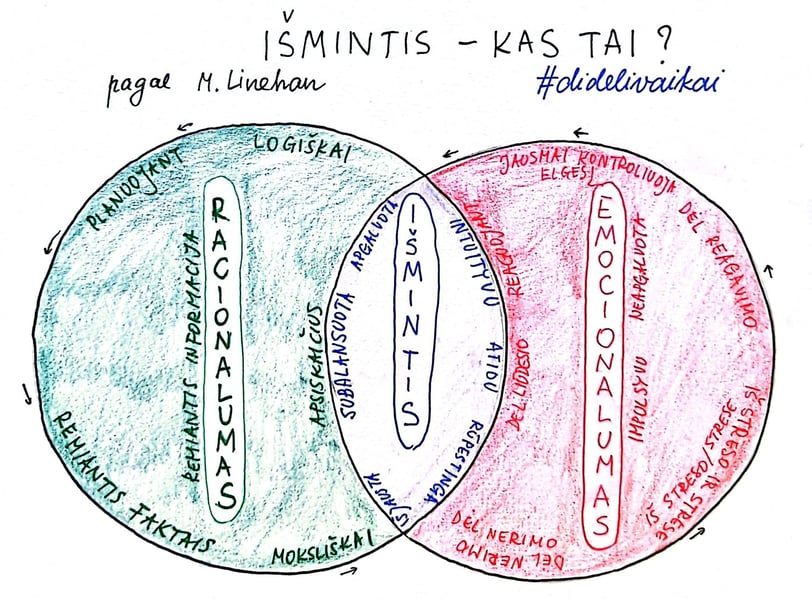 IŠMINTIS – KAS TAI ?
pagal M. Linehan
#didelivaikai
PLANUOJANT
LOGIŠKAI
RACIONALUMAS
REMIANTIS INFORMACIJA
APSISKAIČIUS
REMIANTIS FAKTAIS
MOKSLIŠKAI
SUBALANSUOTA APGALVOTA
IŠMINTIS
INTUITYVU ATIDU RŪPESTINGA
IŠJAUSTA
JAUSMAI KONTROLIUOJA
ELGESĮ
DĖL REAGAVIMO
REAGUOJANT
DĖL LIŪDESIO
EMOCIONALUMAS
IMPULSYVU NEAPGALVOTA
IŠ STRESO/STRESE
IŠ STRESO IR STRESE
DĖL NERIMO
DĖL NERIMO